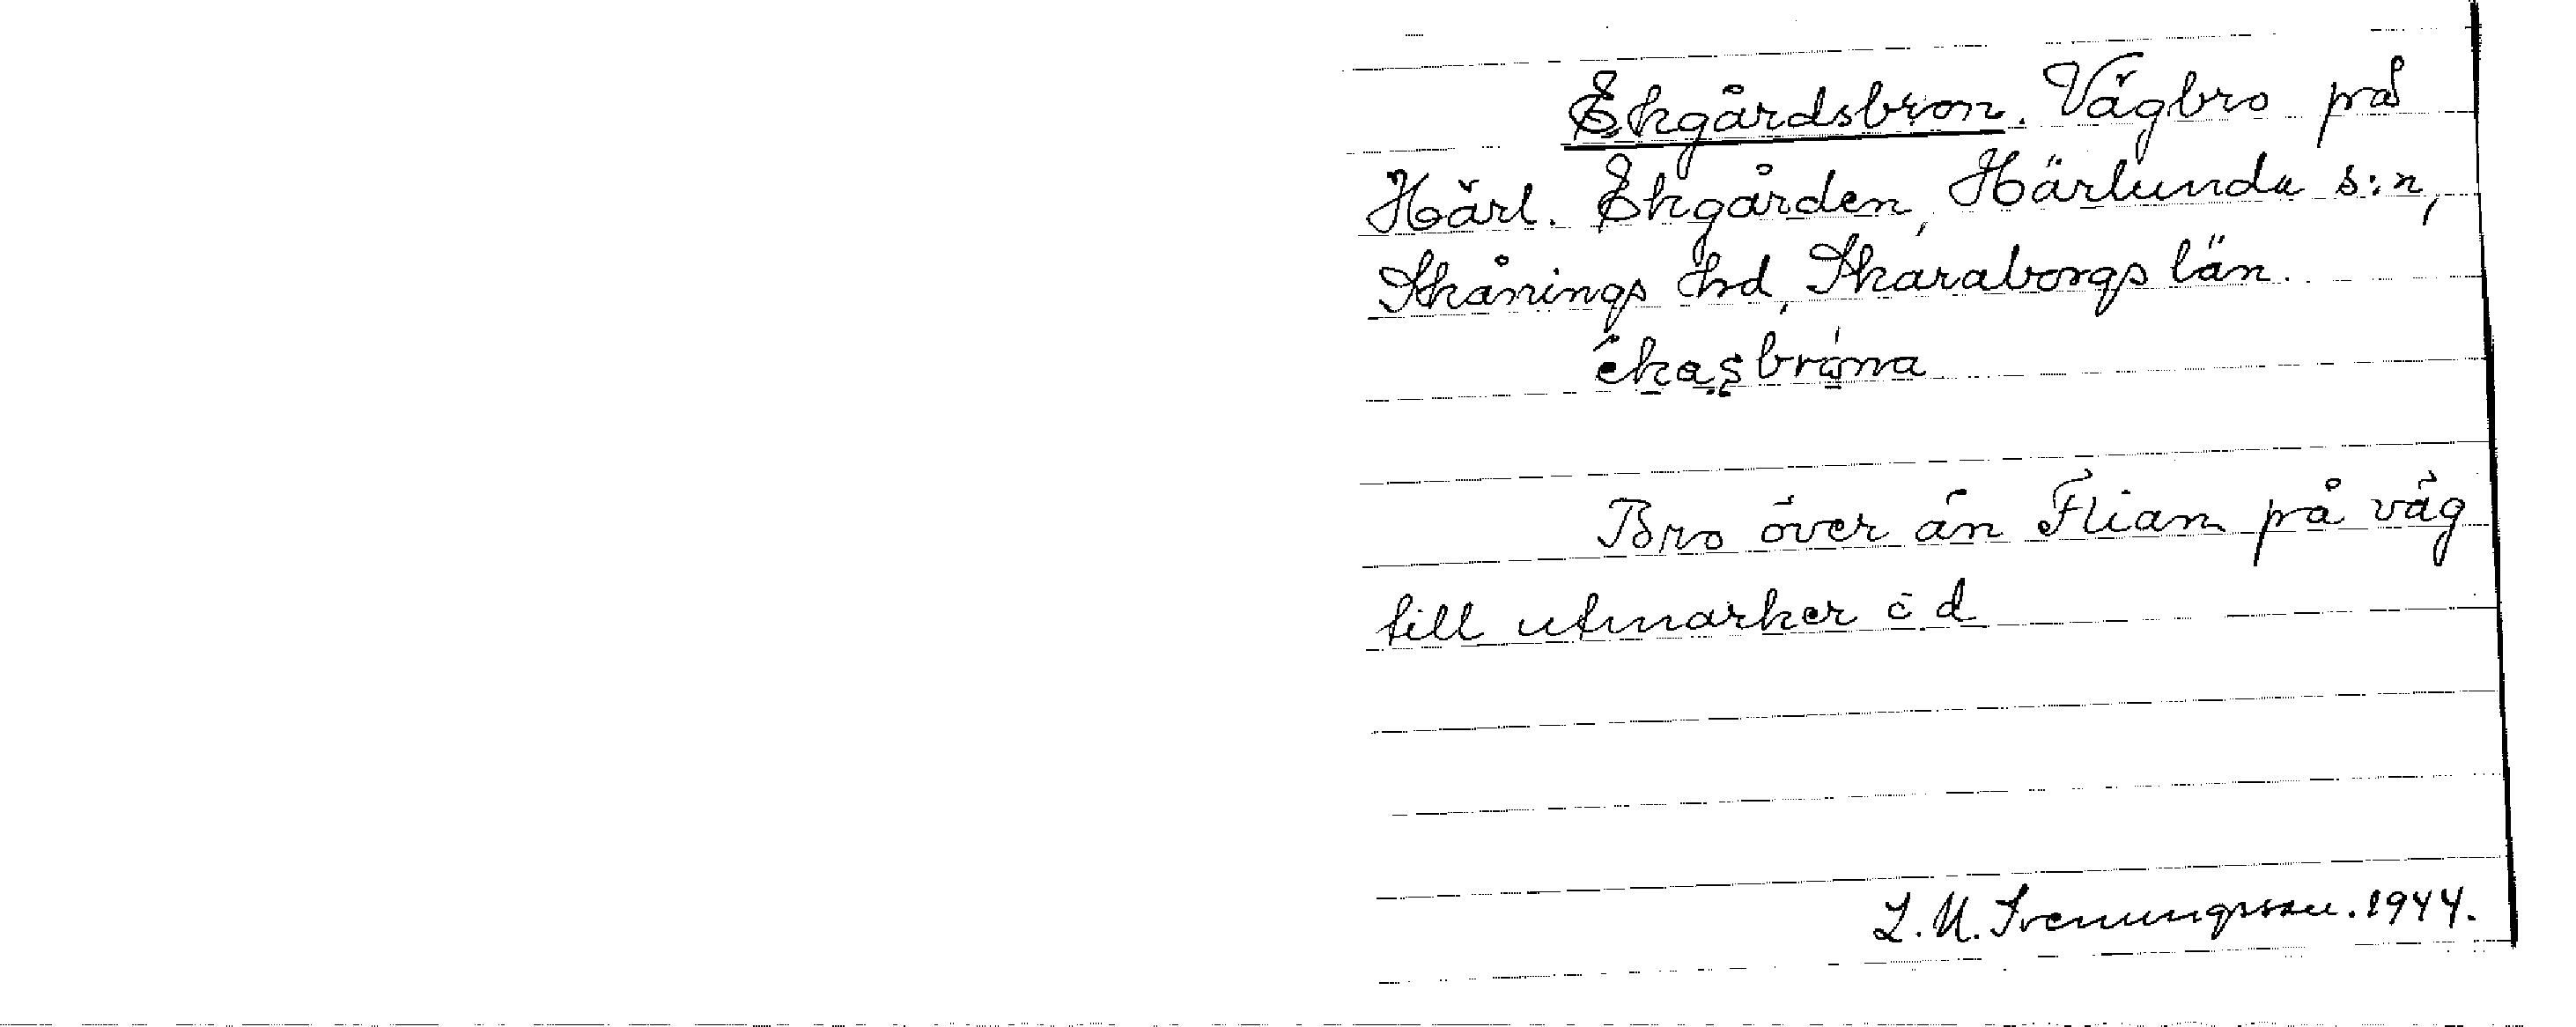 Ekgårdsbron. Vägbro på
Härl. Ekgården, Härlunda s:n,
Skånings hd, Skaraborgs län.
ékasbróna
Bro över ån Flian på väg
till utmarker ö.d
L. U. Svenungsson. 1944.